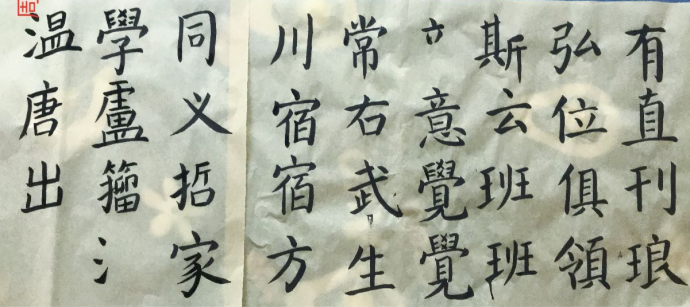 有直刊琅
弘位俱領
斯云班班
意覺覺
常右武生
川宿宿方
同义哲家
學盧籀氵
温唐出